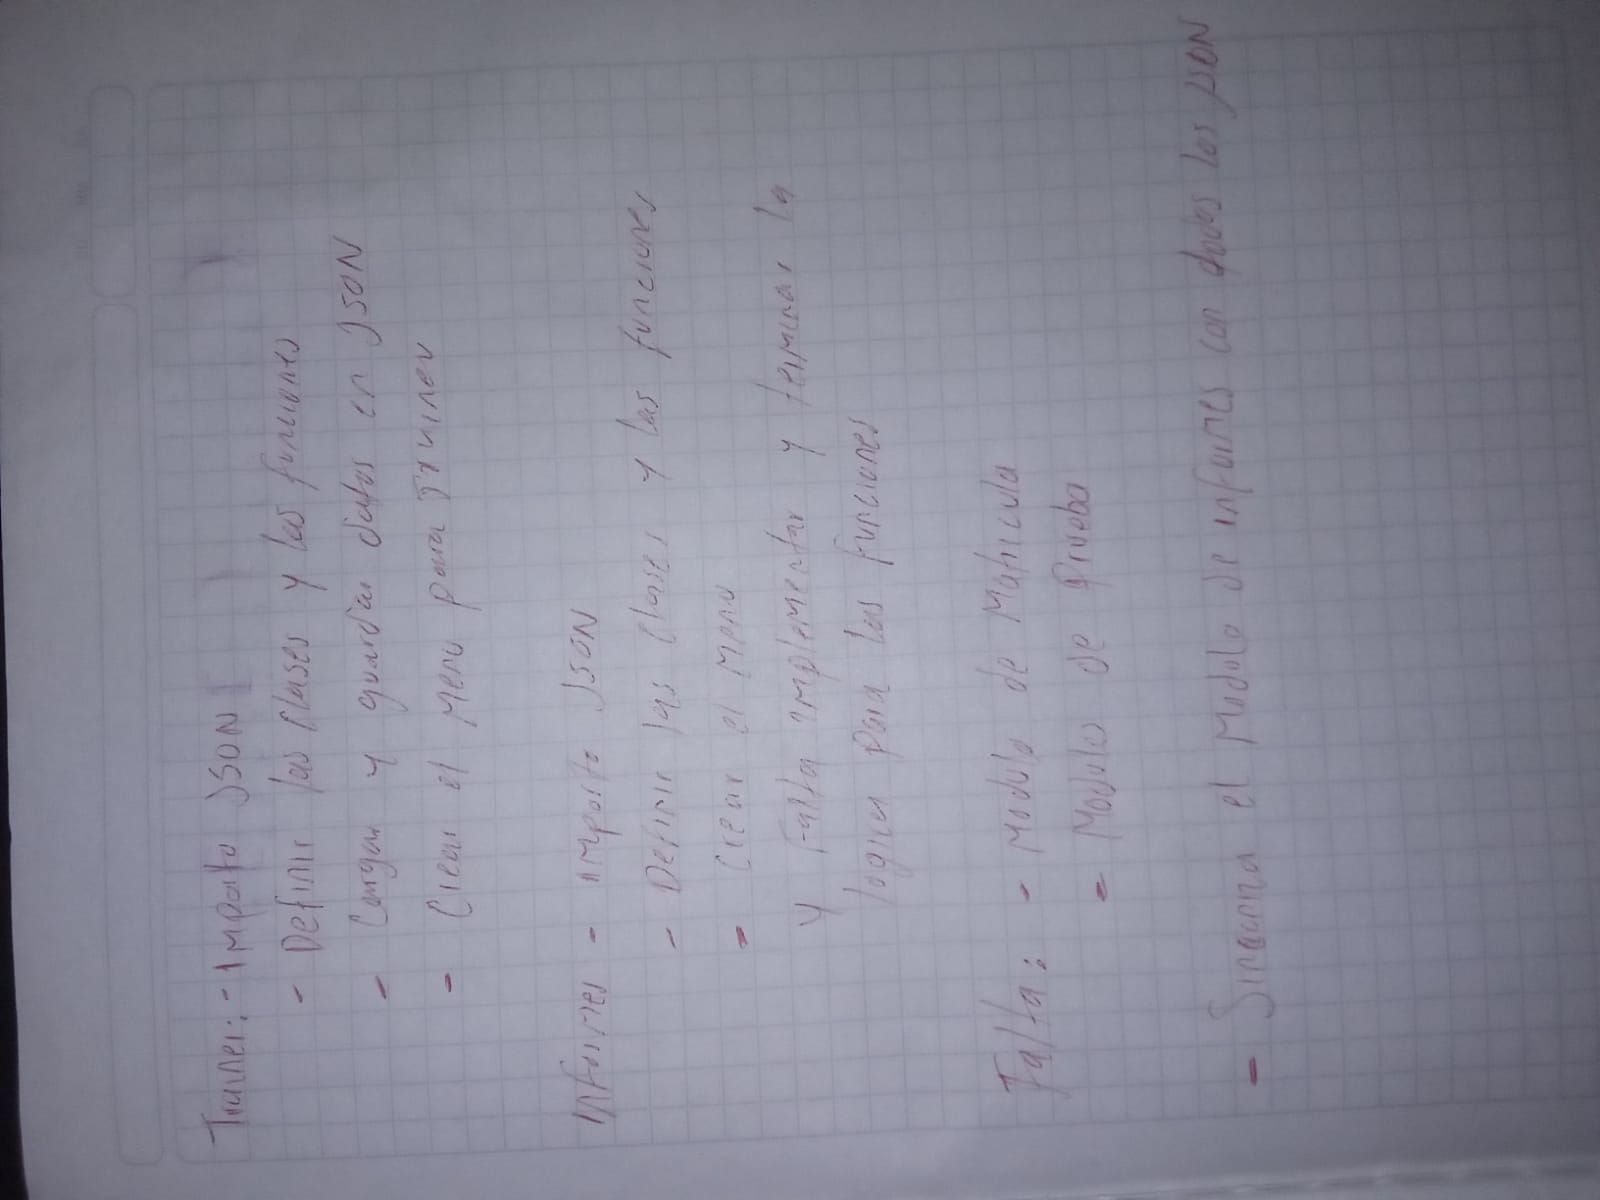 Trainer: - Importo JSON
- Definir las clases y las funciones
- Cargar y guardar datos en JSON
- Crear el Menu para Trainer
Informes - importo JSON
- Definir las clases y las funciones
- Crear el menu
y Falta implementar y terminar la
logica para las funciones
Falta: - Modulo de Matricula
- Modulo de Prueba
- el Modulo de informes con todos los JSON